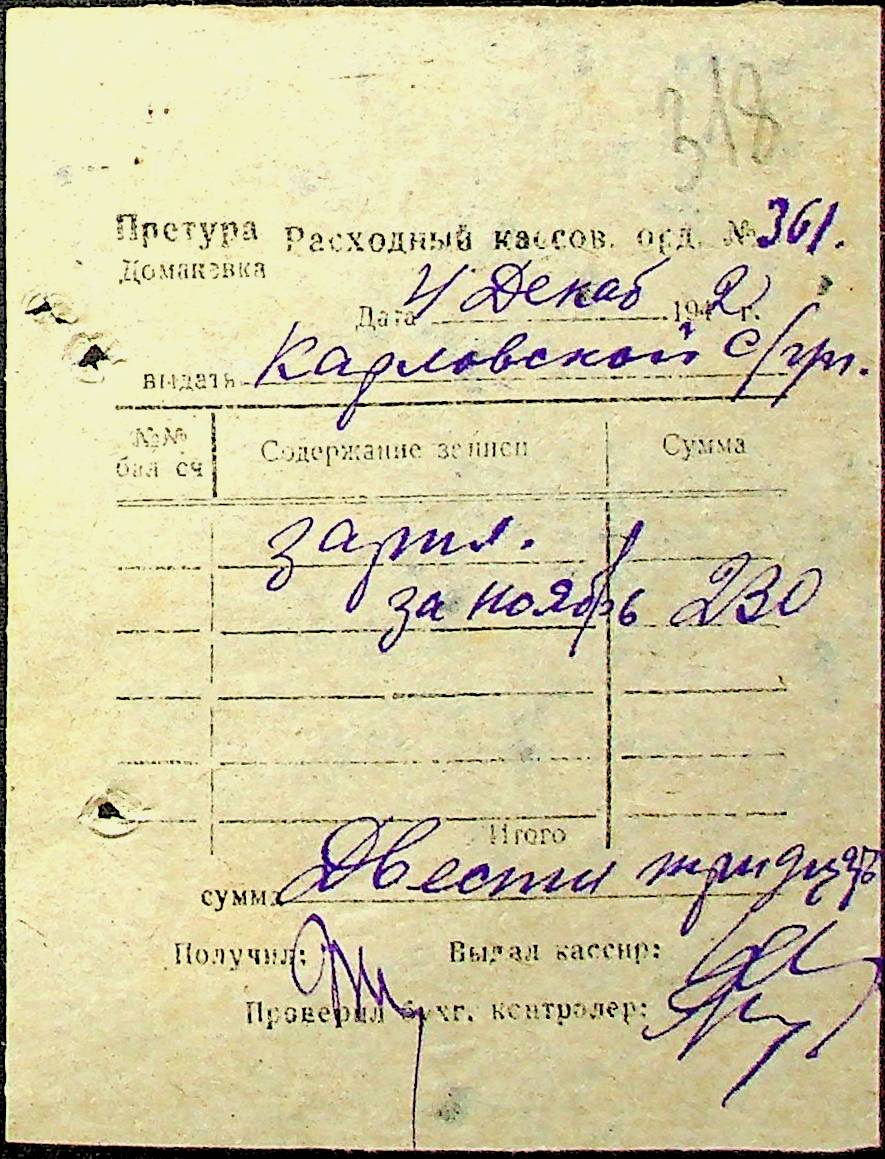 318
Претура Расходный кассов. орд. № 361.
Домановка
Дата 4 Декаб 1942 г.
выдать Карловской с/упр.
№№ Содержание записи Сумма
бал сч
зарпл.
за ноябрь 230
Итого
сумма Двести тридцать
Получил: Выдал кассир:
Проверил бухг. контролер: